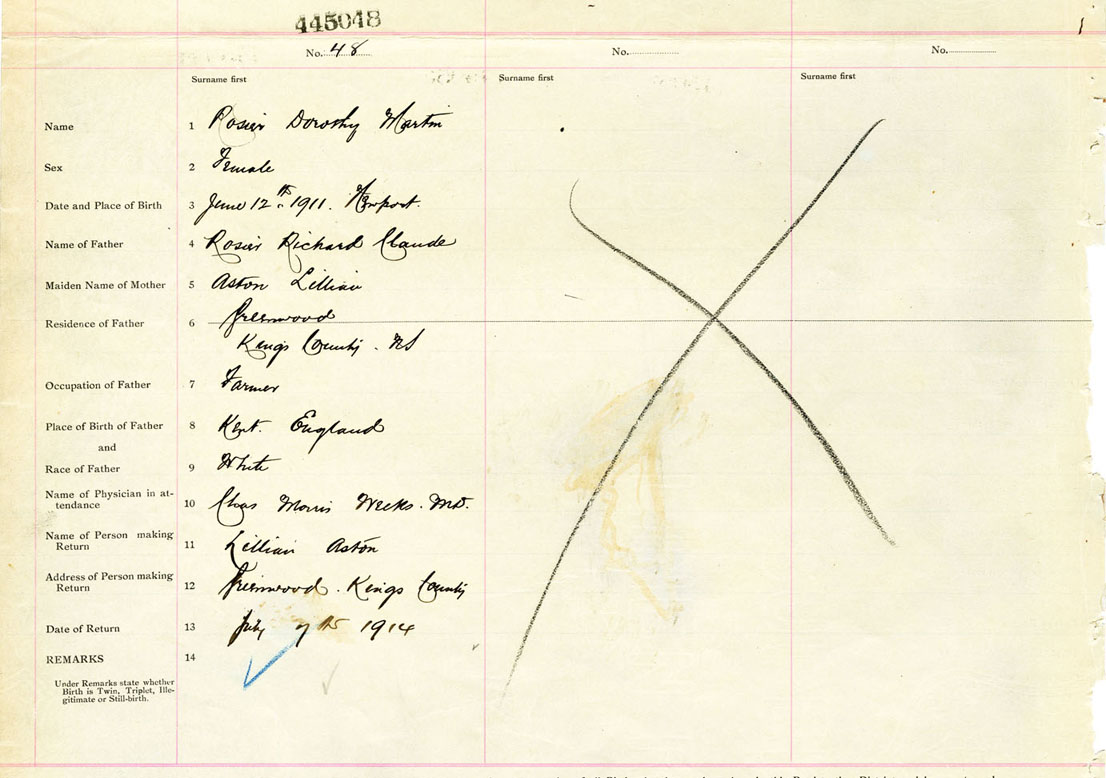 445048
No. 48 No. No.
Surname first Surname first Surname first
Name 1 Rosier Dorothy Martin
Sex 2 Female
Date and Place of Birth 3 June 12th 1911. Newport.
Name of Father 4 Rosier Richard Claude
Maiden Name of Mother 5 Aston Lillian
Residence of Father 6 Greenwood
Kings County. NS
Occupation of Father 7 Farmer
Place of Birth of Father 8 Kent. England
and
Race of Father 9 White
Name of Physician in at-
tendance 10 Chas Morris Weeks. MD.
Name of Person making
Return 11 Lillian Aston
Address of Person making
Return 12 Greenwood. Kings County
Date of Return 13 July 7th 1914
REMARKS 14
Under Remarks state whether
Birth is Twin, Triplet, Ille-
gitimate or Still-birth.